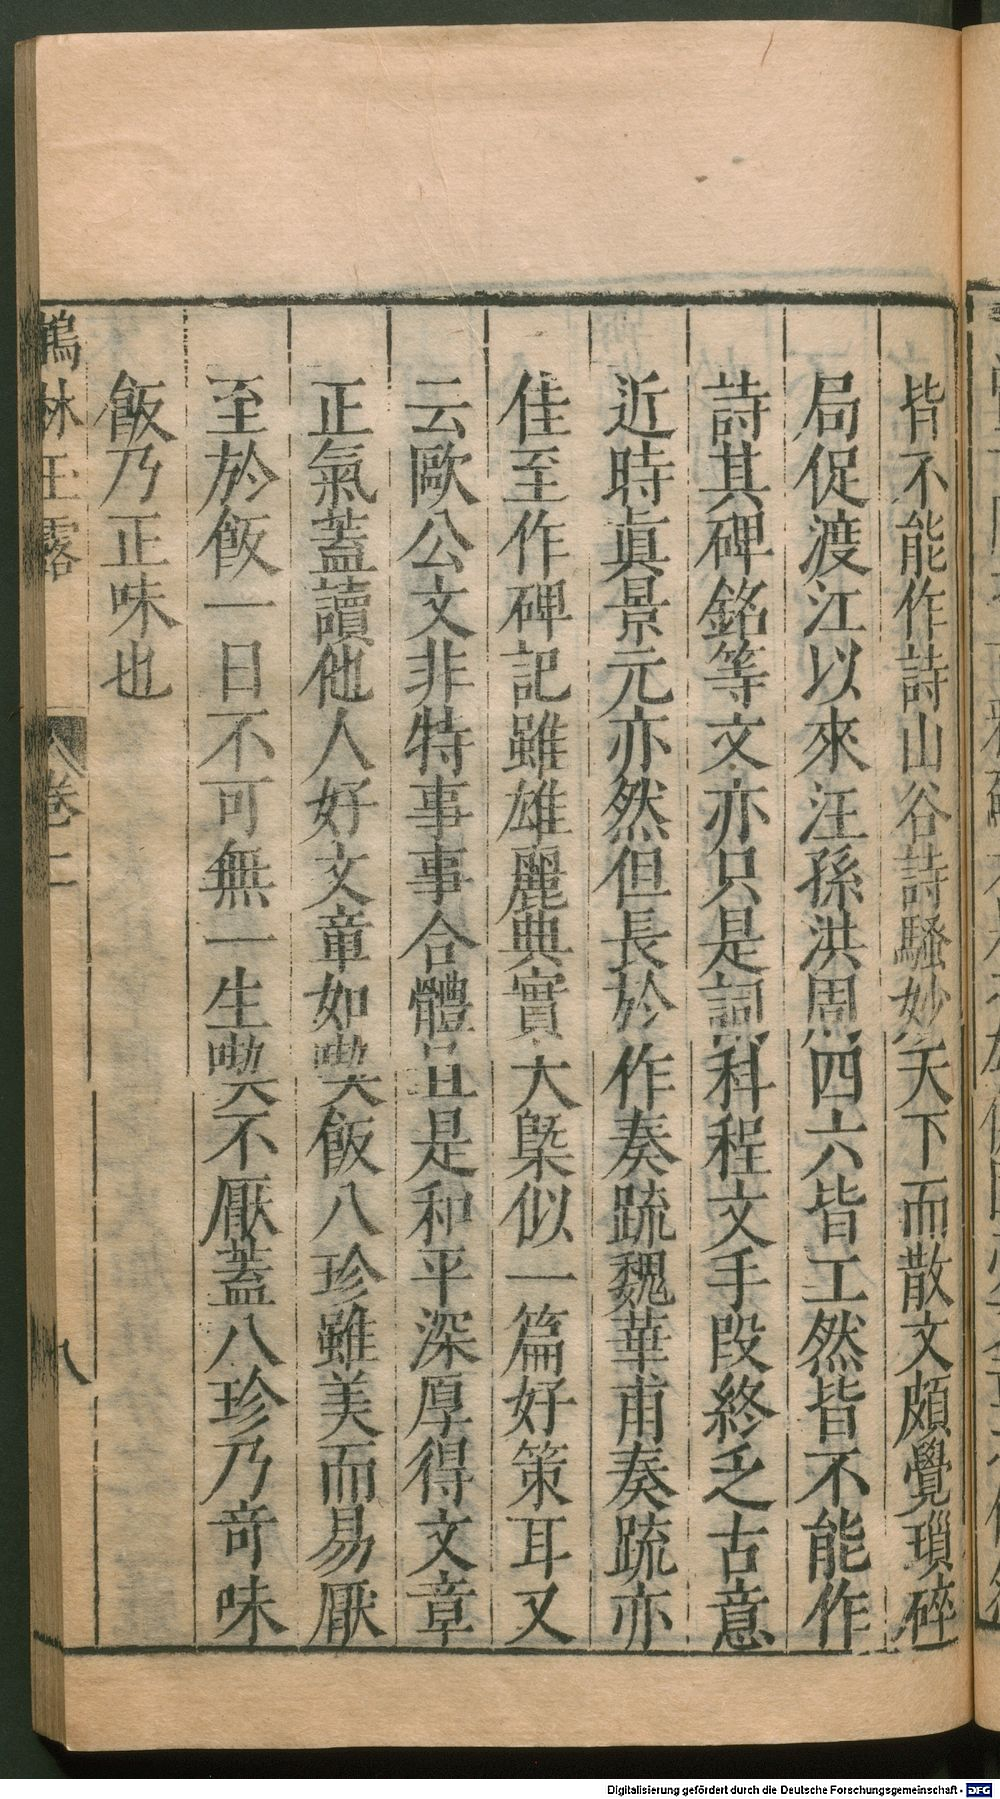 皆不能作詩山谷詩騷妙天下而散文頗覺瑣碎
局促渡江以來汪孫洪周四六皆工然皆不能作
詩其碑銘等文亦只是詞科程文手段終乏古意
近時眞景元亦然但長於作奏疏魏華甫奏疏亦
佳至作碑記雖雄麗典實大槩似一篇好策耳又
云歐公文非特事事合體且是和平深厚得文章
正氣蓋讀他人好文章如喫飯八珍雖美而易厭
至於飯一日不可無一生喫不厭蓋八珍乃奇味
飯乃正味也
鶴林玉露 卷二 八
Digitalisierung gefördert durch die Deutsche Forschungsgemeinschaft - DFG